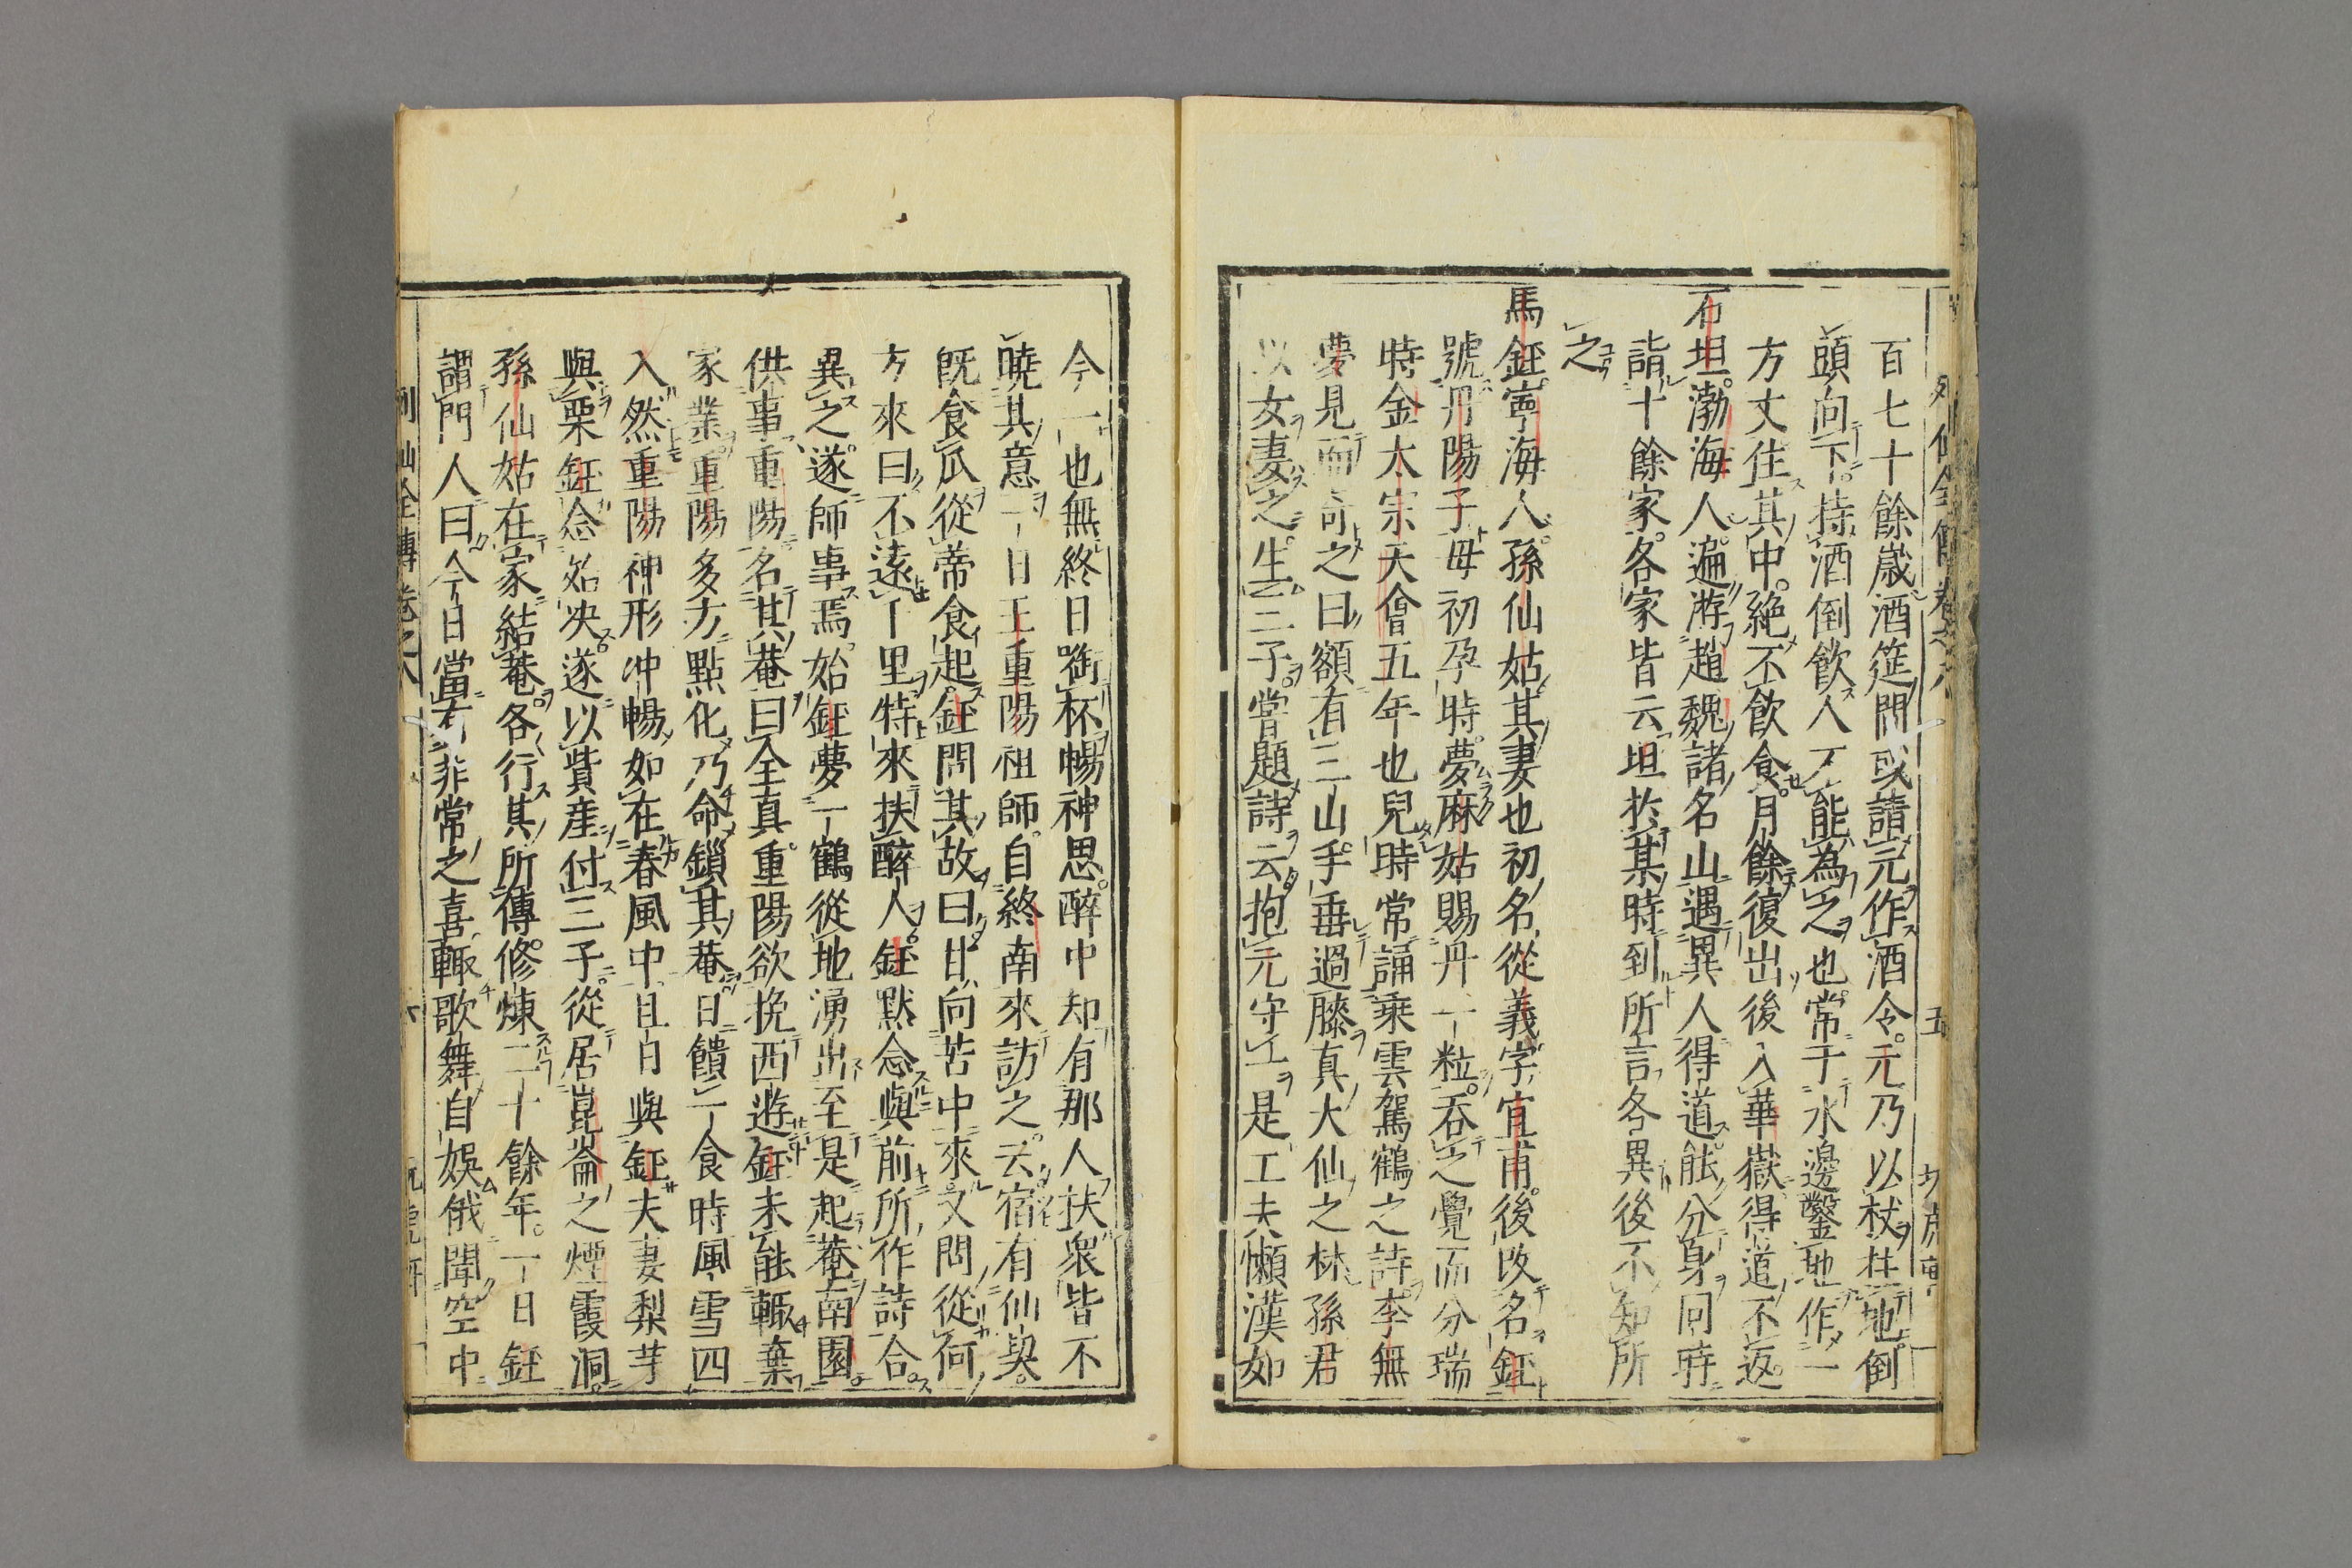 百七十餘歲酒筵間或請元作酒令元乃以杖拄地倒
頭向下持酒倒飲人不能為之也常于水邊鑿地作一
方丈住其中絶不飲食月餘復出後入華嶽得道不返
石坦渤海人遍游趙魏諸名山遇異人得道能分身同時
詣十餘家各家皆云坦於某時到所言各異後不知所
之
馬鈺寧海人孫仙姑其妻也初名從義字宜甫後改名鈺
號丹陽子母初孕時夢麻姑賜丹一粒吞之覺而分瑞
時金太宗天會五年也兒時常誦乘雲駕鶴之詩李無
夢見而奇之曰額有三山手垂過膝真大仙之材孫君
以女妻之生三子嘗題詩云抱元守一是工夫懶漢如
今一也無終日銜杯暢神思醉中却有那人扶衆皆不
曉其意一日王重陽祖師自終南來訪之云宿有仙契
既食瓜從蒂食起鈺問其故曰甘向苦中來又問從何
方來曰不遠千里特來扶醉人鈺默念與前所作詩合
異之遂師事焉始鈺夢一鶴從地湧出至是起菴南園
供事重陽名其菴曰全真重陽欲挽西遊鈺未能輒棄
家業重陽多方點化乃命鎖其菴日饋一食時風雪四
入然重陽神形冲暢如在春風中且日與鈺夫妻梨芋
與栗鈺念始决遂以貲産付三子從居崑崙之煙霞洞
孫仙姑在家結菴各行其所傳修煉二十餘年一日鈺
謂門人曰今日當有非常之喜輒歌舞自娛俄聞空中
列仙全傳卷之八
六